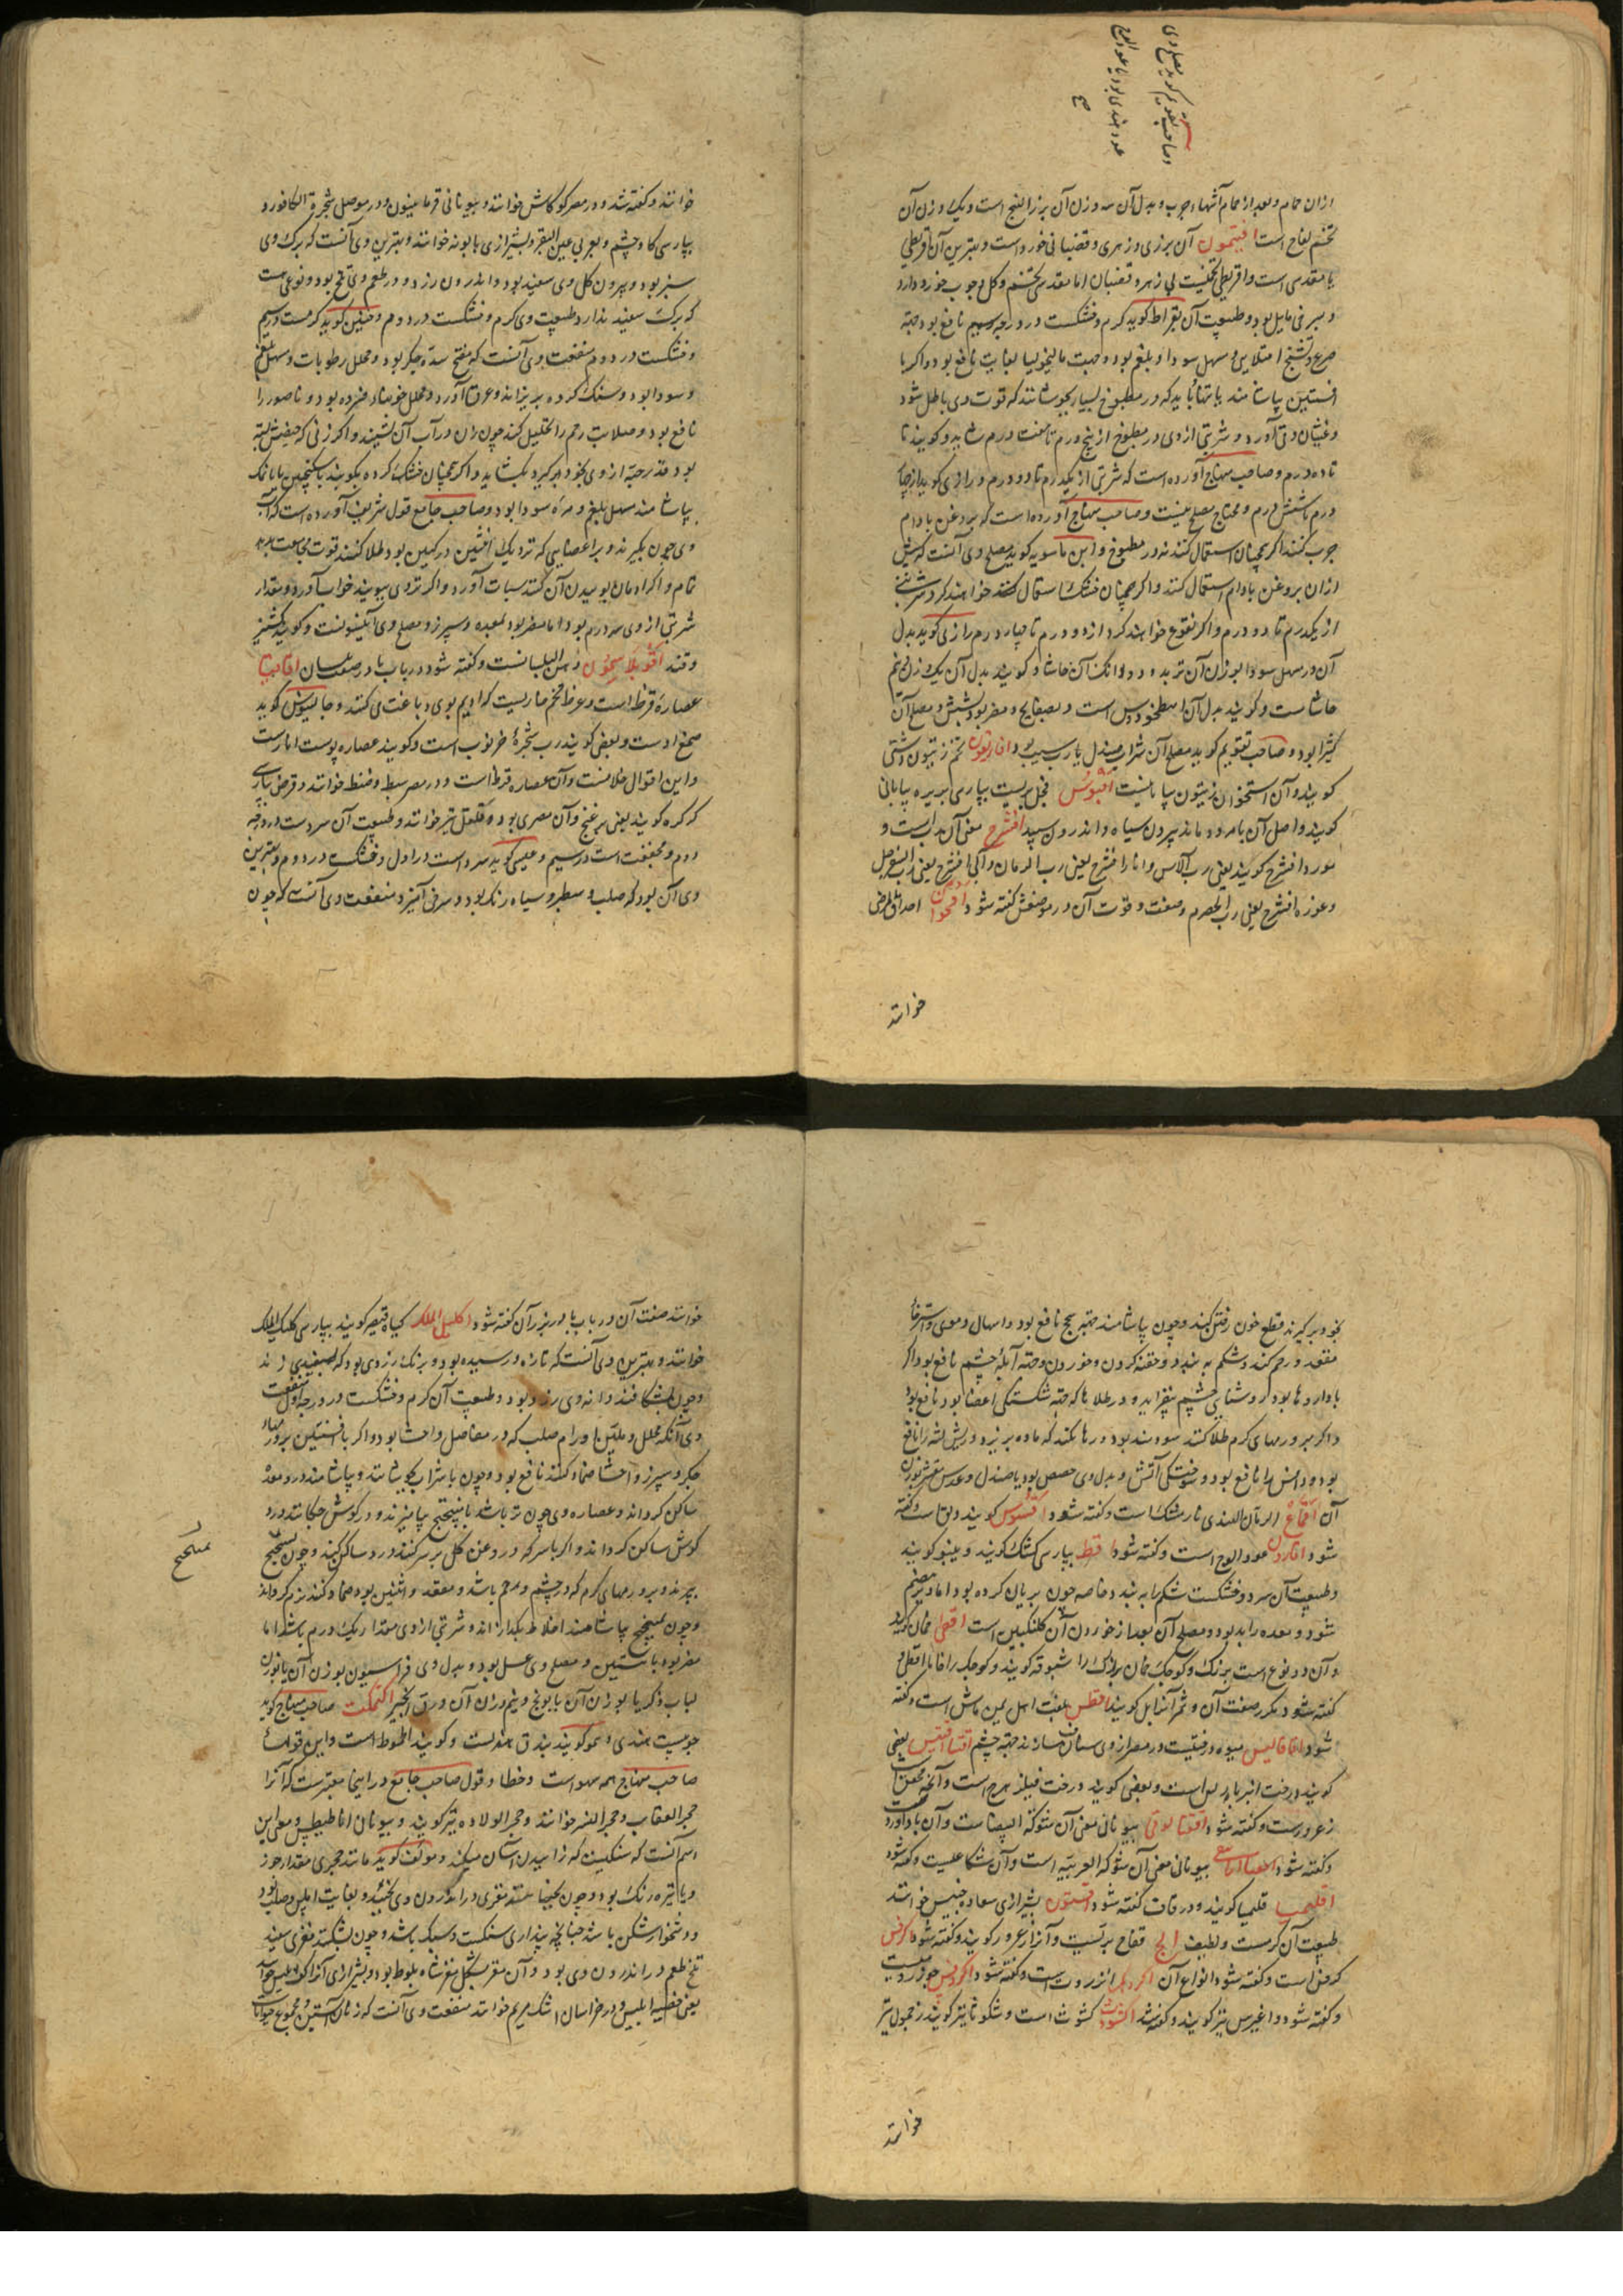 وصاحب تقویم کوید مصلح وی
عود هندی بود یا عود الوج
صح
ازان حمام وبعد از حمام آشهاء چرب وبدل آن سه وزن آن بزر البنج است ویک وزن آن
تخم لفاح است افتیمون آن بزری وزهری وقضبانی خورد است وبهترین آن اقریطی
یا مقدسی است واقریطی تخمیست بی زهر وقضبان اما مقدسی تخم وکل وچوب خورد دارد
وبسرخی مایل بود وطبیعت آن بقراط کوید کرم وخشکست در درجه سیم نافع بود جهة
صرع وتشنج امتلایی ومسهل سودا وبلغم بود وجهت مالیخولیا بغایت نافع بود واکر با
افسنتین بیاشامند یا تنها باید که در مطبوخ بسیار نجوشانند که قوت وی باطل شود
وغثیان وقی آورد وشربتی از وی در مطبوخ از پنج درم تا هفت درم شاید وکویند تا
تا ده درم وصاحب منهاج آورده است که شربتی از یکدرم تا دو درم ورازی کوید از چهار
درم تا شش درم ومحتاج مصلح نیست وصاحب منهاج آورده است که بروغن بادام
چرب کنند اکر همچنان استعمال کنند نه در مطبوخ وابن ماسویه کوید مصلح وی آنست که پیش
ازان بروغن بادام استعمال کنند واکر همچنان خشک استعمال کنند خواهند کرد شربتی
از یکدرم تا دو درم واکر نقوع خواهند کرد از دو درم تا چهار درم رازی کوید بدل
آن در مسهل سودا بوزن آن تربد ودو دانک آن حاشا وکویند بدل آن یک وزن ونیم
حاشا ست وکویند بدل آن اسطخودوس است وبسفایج ومضر بود بشش ومصلح آن
کثیرا بود وصاحب تقویم کوید مصلح آن شراب صندل یا رب سیب بود افاریقون تخم زیتون دشتی
کویند وآن استخوان زیتون بیابانیست افیوس فجل بریست بپارسی تربیزه بیابانی
کویند واصل آن بامرود ماند بیرون سیاه واندرون سپید افشرج معنی آن رب است و
مورد افشرج کویند یعنی رب الآس وانار افشرج یعنی رب الرمان وآبی افشرج یعنی رب السفرجل
وغوره افشرج یعنی رب الحصرم وصفت وقوت آن در موضعش کفته شود اقحوان احداق المرضی
خوانند
خوانند وکفته شد ودر مصر کرکاش خوانند وبیونانی قرمانیتون ودر موصل شجرة الکافور و
بپارسی کاو چشم وبعربی عین البقر وبشیرازی بابونه خوانند وبهترین وی آنست که برک وی
سبز بود وبیرون کل وی سفید بود واندرون زرد ودر طعم وی تلخی بود ونوعی هست
که برک سفید ندارد وطبیعت وی کرم وخشکست در دوم وحنین کوید کرمست در سیم
وخشکست در دوم منفعت وی آنست که مفتح سده جکر بود ومحلل رطوبات ومسهل بلغم
وسودا بود وسنک کرده بریزاند وعرق آورد ومحلل خون فسرده بود وناصور را
نافع بود وصلابت رحم را تحلیل کند چون زن در آب آن نشیند واکر زنی که حیضش بسته
بود قدر حبة از وی بخود برکیرد بکشاید واکر همچنان خشک کرده بکوبند با سکنجبین یا با نمک
بیاشامند مسهل بلغم ومره سودا بود وصاحب جامع قول شریف آورده است که آب
وی چون بکیرند وبر اعضایی که نزدیک انثیین ورکین بود طلا کنند قوت مجامعت بدید
تمام واکر ادمان بوییدن آن کنند سبات آورد واکر تر وی ببویند خواب آورد ومقدار
شربتی از وی سه درم بود اما مضر بود بمعده وسپرز ومصلح وی انیسونست وکویند کشنیز
وقند اقوبلاسمون دهن البلسانست وکفته شود در باب با در صفت بلسان اقاقیا
عصارهٔ قرظ است وعرظ تخم خاریست که ادیم بوی دباغت می کنند وجالینوس کوید
صمغ اوست وبعضی کویند رب شجرهٔ خرنوب است وکویند عصاره پوست انار است
واین اقوال خلافست وآن عصاره قرظ است ودر مصر سبط وضنط خوانند وقرض بپارسی
کرکره کویند یعنی بر غنج وآن مصری بود وقلقل نیز خوانند وطبیعت آن سردست در درجه
دوم ومجففت است در سیم وعیسی کوید سرد است در اول وخشکست در دوم وبهترین
وی آن بود که صلب وسطبر وسیاه رنک بود وسرخی آمیز ومنفعت وی آنست که چون
بخود برکیرند قطع خون رفتن کند وچون بیاشامند جهة سحج نافع بود واسهال دموی واسترخاء
مقعد ورحم کند وشکم به بندد وحقنه کردن وخوردن وجهة آبلهٔ چشم نافع بود اکر
با داروها بود کر وشنایی چشم بیفزاید ودر طلاها که جهة شکستکی اعضا بود نافع بود
واکر بر ورمهای کرم طلا کنند سودمند بود ورها نکند که ماده بریزد وریش لثه را نافع
بود وداحس را نافع بود وسوختکی آتش وبدل وی حضض بود یا صندل وعدس مقشر بوزن
آن اقماع الرمان الهندی نارمشک است وکفته شود اقسوس کویند دبق است وکفته
شود اقارون عود الوج است وکفته شود اقط بپارسی کشک کویند وپینو کویند
وطبیعت آن سرد وخشکست شکم را به بندد خاصه چون بریان کرده بود اما دیر هضم
شود ومعده را بد بود ومصلح آن بعد از خوردن آن کلنکبین است اقطی خمان کوید
وآن دو نوع است بزرک وکوچک خمان بزرک را شبوقه کویند وکوچک را خاما اقطی و
کفته شود دیکر صفت آن وثمر آنرا بل کویند اقطن بلغت اهل یمن ماش است وکفته
شود اقاقالیس میوه درختیست در مصر از وی سازند جهة چشم اقتنا اقتیس بعضی
کویند درخت انبر باریس است وبعضی کویند درخت فیلزهرج است وآنچه محقق است
زعرورست وکفته شود اقتنا لوقی بیونانی معنی آن شوکة البیضا ست وآن باداورد
وکفته شود بیونانی معنی آن شوکة العربیه است وآن شکاعیست وکفته شود
اقلیمیا قلیمیا کویند ودر قاف کفته شود اقسون بشیرازی خوانند
طبیعت آن کرمست ولطیف قفاح بریست وآنرا زعرور کویند وکفته شود اکرفس
کرفس است وکفته شود انواع آن اکردک انزروت است وکفته شود اکرونس جوز رومیست
وکفته شود واغیرس نیز کویند وکفته شد اکشوث کشوث است وشکوثا نیز کویند زحمول نیز
خوانند
خوانند صفت آن در باب با در بزر آن کفته شود اکلیل الملک کیاه قیصر کویند بپارسی کلیک الملک
خوانند وبهترین وی آنست که تازه ورسیده بود وبرنک زردی بود که بسفیدی زند
وچون بشکافند دانه وی زرد بود وطبیعت آن کرم وخشکست در درجه اول منفعت
وی آنکه محلل وملین اورام صلب که در مفاصل واحشا بود واکر با افسنتین بر ورمهاء
جکر وسپرز واحشا ضماد کنند نافع بود وچون با شراب بجوشانند وبیاشامند درد معده
ساکن کرداند وعصاره وی چون تر باشد با میبختج بیامیزند ودر کوش چکانند درد
کوش ساکن کرداند واکر با سرکه وروغن کل بر سر کنند درد ساکن کند وچون بمیبختج
بپزند وبر ورمهای کرم که در چشم ورحم باشد ومقعد وانثیین بود ضماد کنند نرم کرداند
وچون بمیبختج بیاشامند اخلاط بکدازاند وشربتی از وی مقدار یک درم باشد اما
مضر بود بانثیین ومصلح وی عسل بود وبدل وی فراسیون بوزن آن یا بوزن
لباب ذکر یا بوزن آن بابونج ونیم وزن آن ورق انجیر اکتمکت صاحب منهاج کوید
چوبیست هندی وهمو کویند بندق هندیست وکویند اطموط است واین قولهاء
صاحب منهاج همه سهو است وخطا وقول صاحب جامع در اینجا معتبرست که آنرا
حجر العقاب وحجر النسر خوانند وحجر الولاده نیز کویند وبیونانی اناطیطس ومعنی این
اسم آنست که سنکیست که زاییدن آسان میکند ومولف کوید مانند حجری مقدار جوز
ویا تیره رنک بود وچون بجنبانند مغزی در اندرون وی بجنبد وبغایت املس وصلب بود
ودشخوار شکن باشد چنانچه پنداری سنکست وسبک باشد وچون بشکند مغزی سفید
تلخ طعم در اندرون وی بود وآن مغز بشکل مغز شاه بلوط بود وبشیرازی آنرا خوانند
یعنی خصیه ابلیس ودر خراسان اشک مریم خوانند منفعت وی آنست که زنان آبستن ومجموع حیوانات
بمیبختج